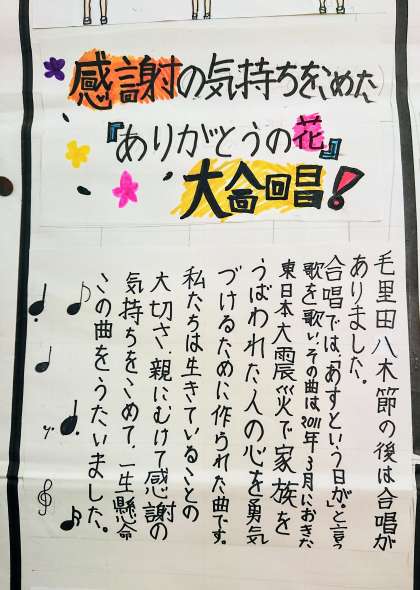 感謝の気持ちをこめた
『ありがとうの花』
大合唱!
毛里田八木節の後は合唱が
ありました。
合唱では、「あすという日が」と言う
歌を歌い、その曲は2011年3月におきた
東日本大震災で家族を
うばわれた人の心を勇気
づけるために作られた曲です。
私たちは生きていることの
大切さ、親にむけて感謝の
気持ちをこめて、一生懸命
この曲をうたいました。